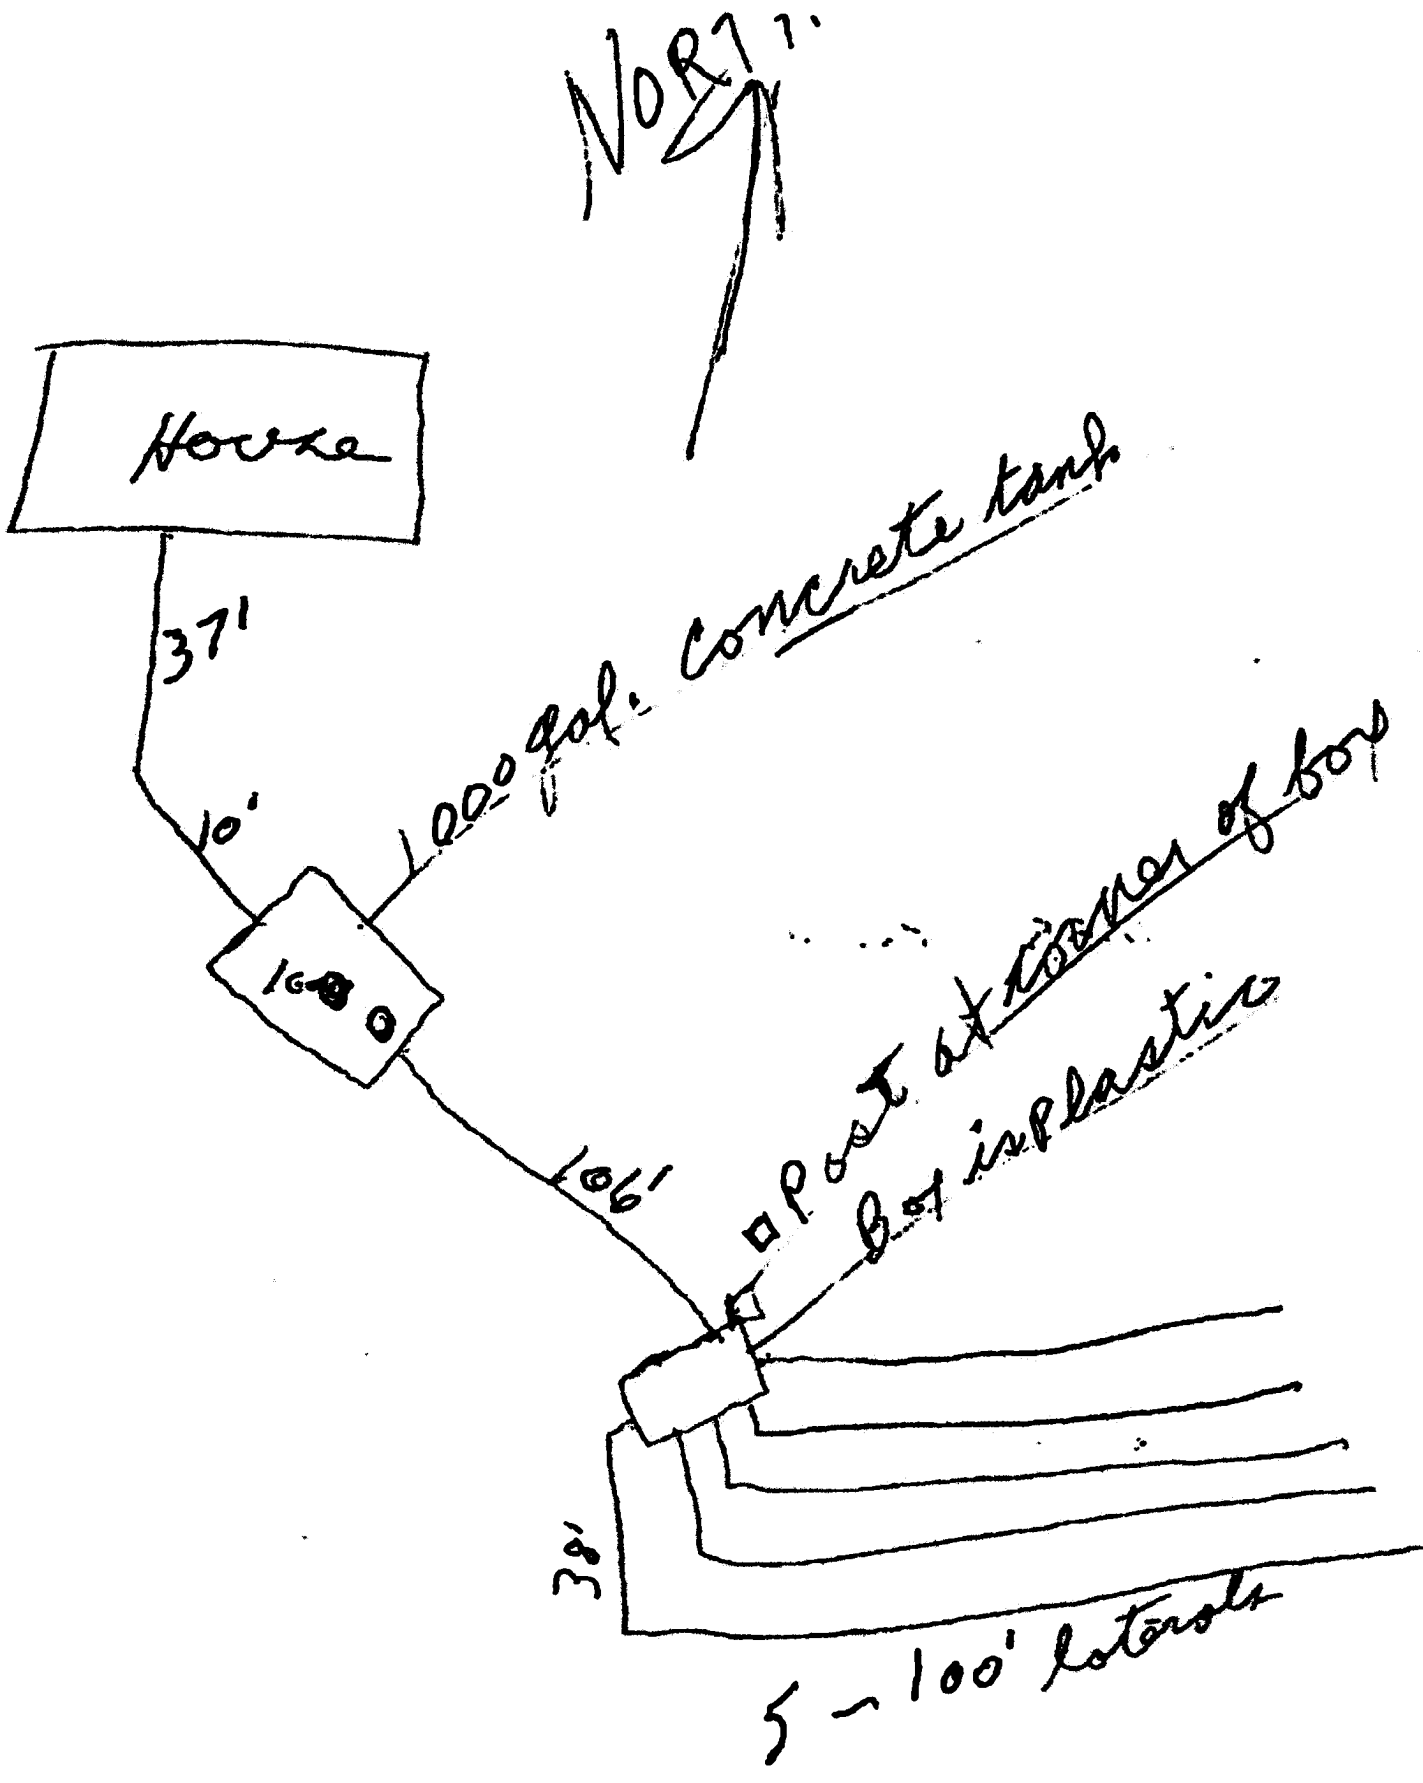 NORTH
House
37'
10'
1000 gal. concrete tank
Post at corner of box
Box is plastic
106'
38'
5 - 100' laterals